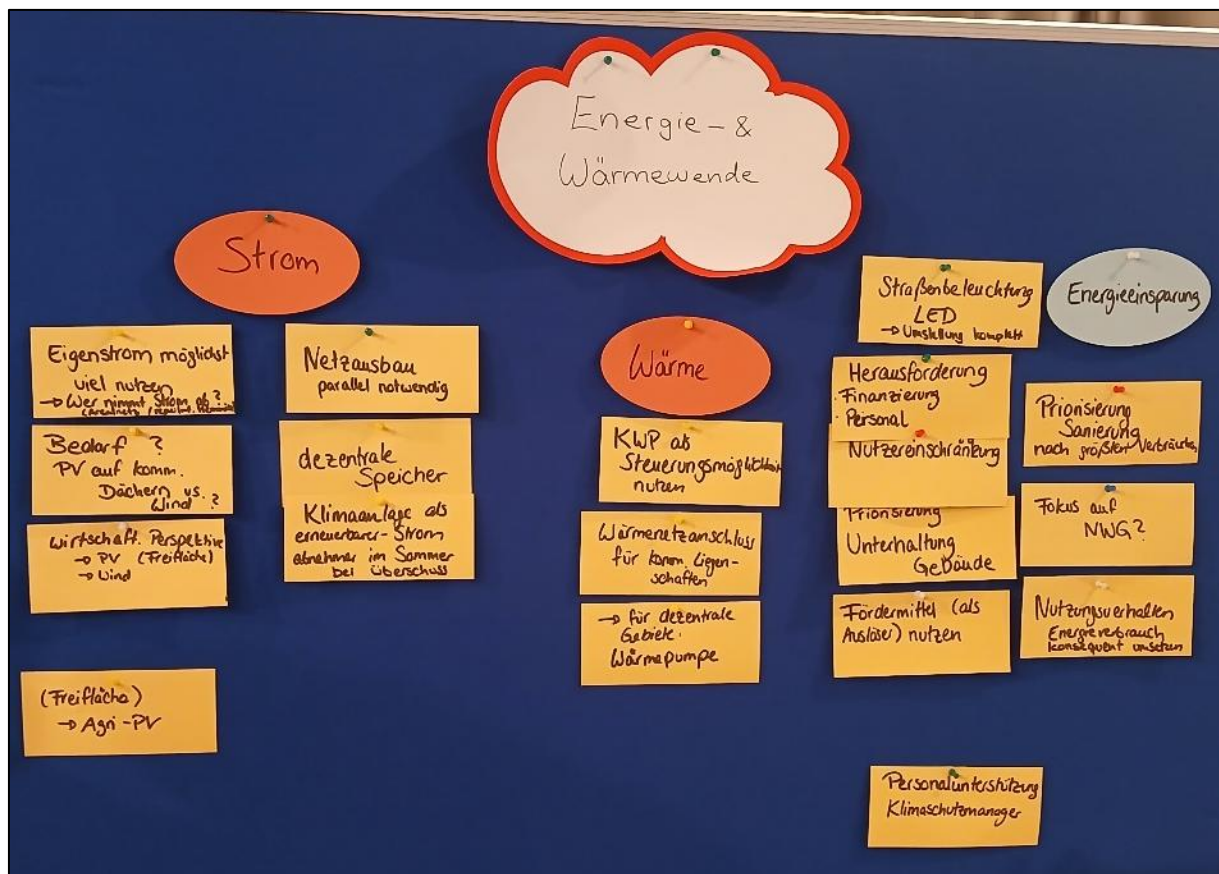 Energie- &
Wärmewende
Strom
Eigenstrom möglichst
viel nutzen
→ Wer nimmt Strom ab?
Bedarf ?
PV auf komm.
Dächern vs.
Wind ?
Wirtschaft. Perspektive
→ PV (Freifläche)
→ Wind
(Freifläche)
→ Agri-PV
Netzausbau
parallel notwendig
dezentrale
Speicher
Klimaanlage als
erneuerbarer-Strom
abnehmer im Sommer
bei Überschuss
Wärme
KWP als
Steuerungsmöglichkeit
nutzen
Wärmenetzanschluss
für komm. Liegen-
schaften
→ für dezentrale
Gebiete.
Wärmepumpe
Energieeinsparung
Straßenbeleuchtung
LED
→ Umstellung komplett
Herausforderung
· Finanzierung
· Personal
Nutzereinschränkung
Priorisierung
Unterhaltung
Gebäude
Fördermittel (als
Auslöser) nutzen
Priorisierung
Sanierung
nach größten Verbräuchen
Fokus auf
NWG?
Nutzungsverhalten
Energieverbrauch
konsequent umsetzen
Personalunterstützung
Klimaschutzmanager